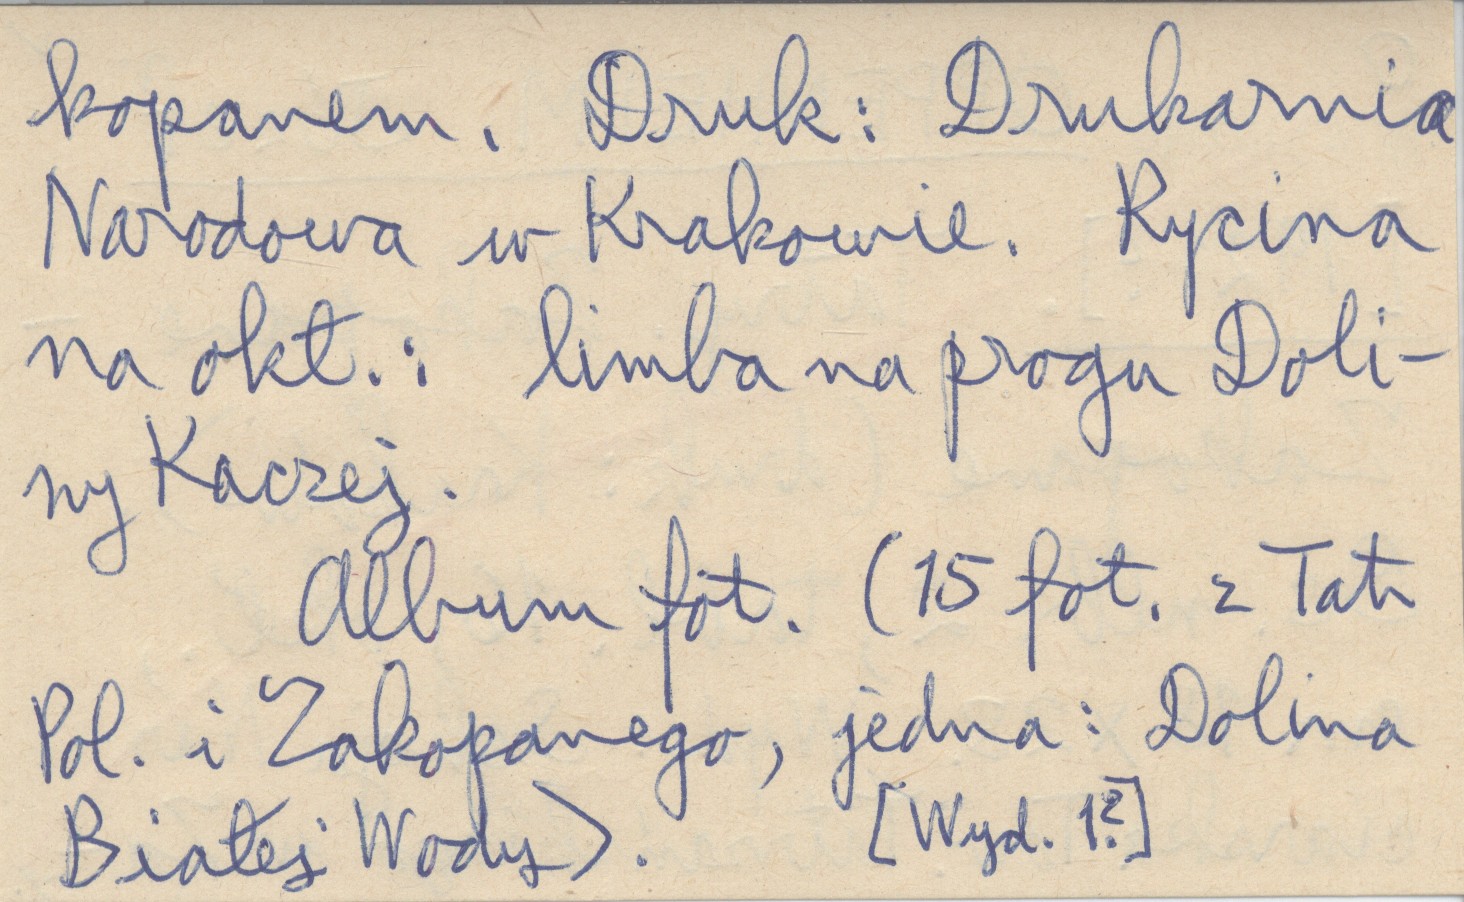 kopanem. Druk: Drukarnia
Narodowa w Krakowie. Rycina
na okł.: limba na progu Doli-
ny Kaczej.
Album fot. (15 fot. z Tatr
Pol. i Zakopanego, jedna: Dolina
Białej Wody). [Wyd. 1?]